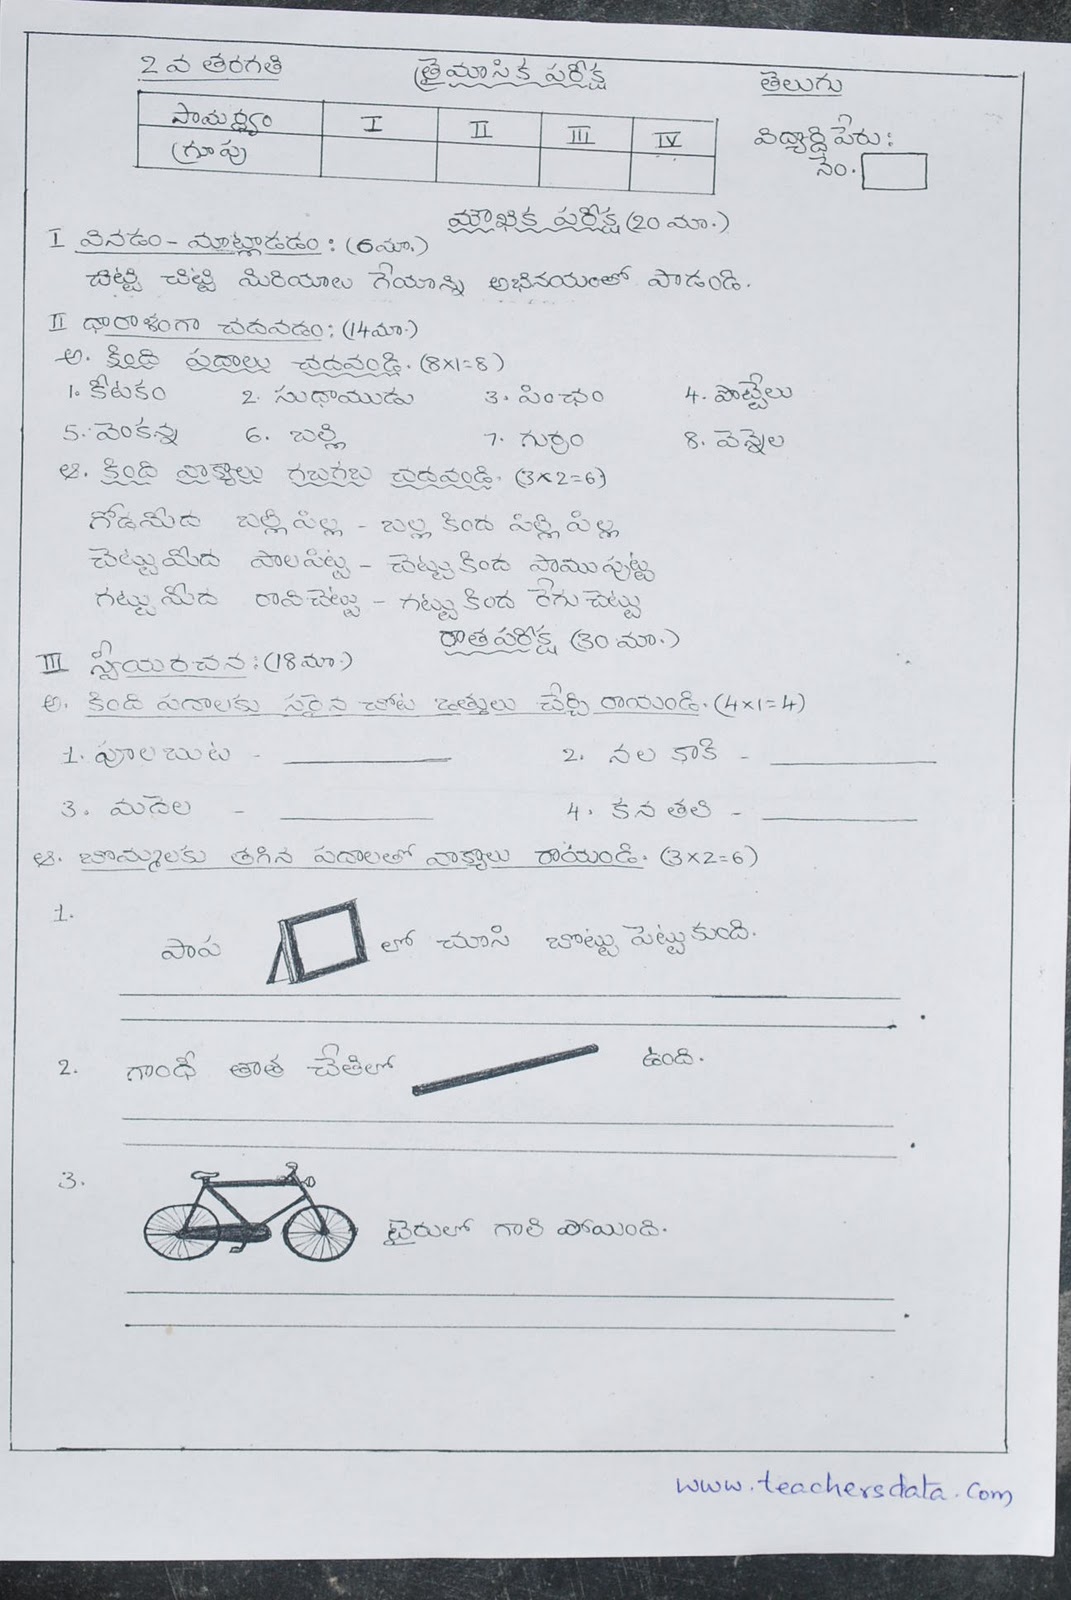 2 వ తరగతి త్రైమాసిక పరీక్ష తెలుగు
సామర్థ్యం I II III IV
గ్రూపు
విద్యార్థి పేరు :
నెం.
మౌఖిక పరీక్ష (20 మా.)
I వినడం - మాట్లాడడం : (6మా.)
చిట్టి చిట్టి మిరియాలు గేయాన్ని అభినయంతో పాడండి.
II ధారాళంగా చదవడం : (14మా.)
అ. కింది పదాలు చదవండి. (8x1=8)
1. కీటకం 2. సుధాముడు 3. పింఛం 4. పొట్టేలు
5. వెంకన్న 6. బల్లి 7. గుర్రం 8. వెన్నెల
ఆ. కింది వాక్యాలు గబగబ చదవండి. (3x2=6)
గోడమీద బల్లిపిల్ల - బల్ల కింద పిల్లి పిల్ల
చెట్టుమీద పాలపిట్ట - చెట్టుకింద పాముపుట్ట
గట్టుమీద రావిచెట్టు - గట్టుకింద రేగుచెట్టు
రాత పరీక్ష (30 మా.)
III స్వీయరచన : (18మా.)
అ. కింది పదాలకు సరైన చోట ఒత్తులు చేర్చి రాయండి. (4x1=4)
1. పూలబుట - 2. నల కాకి -
3. మదెల - 4. కన తలి -
ఆ. బొమ్మలకు తగిన పదాలతో వాక్యాలు రాయండి. (3x2=6)
1.
పాప లో చూసి బొట్టు పెట్టుకుంది.
2. గాంధీ తాత చేతిలో ఉంది.
3.
టైరులో గాలి పోయింది.
www.teachersdata.com